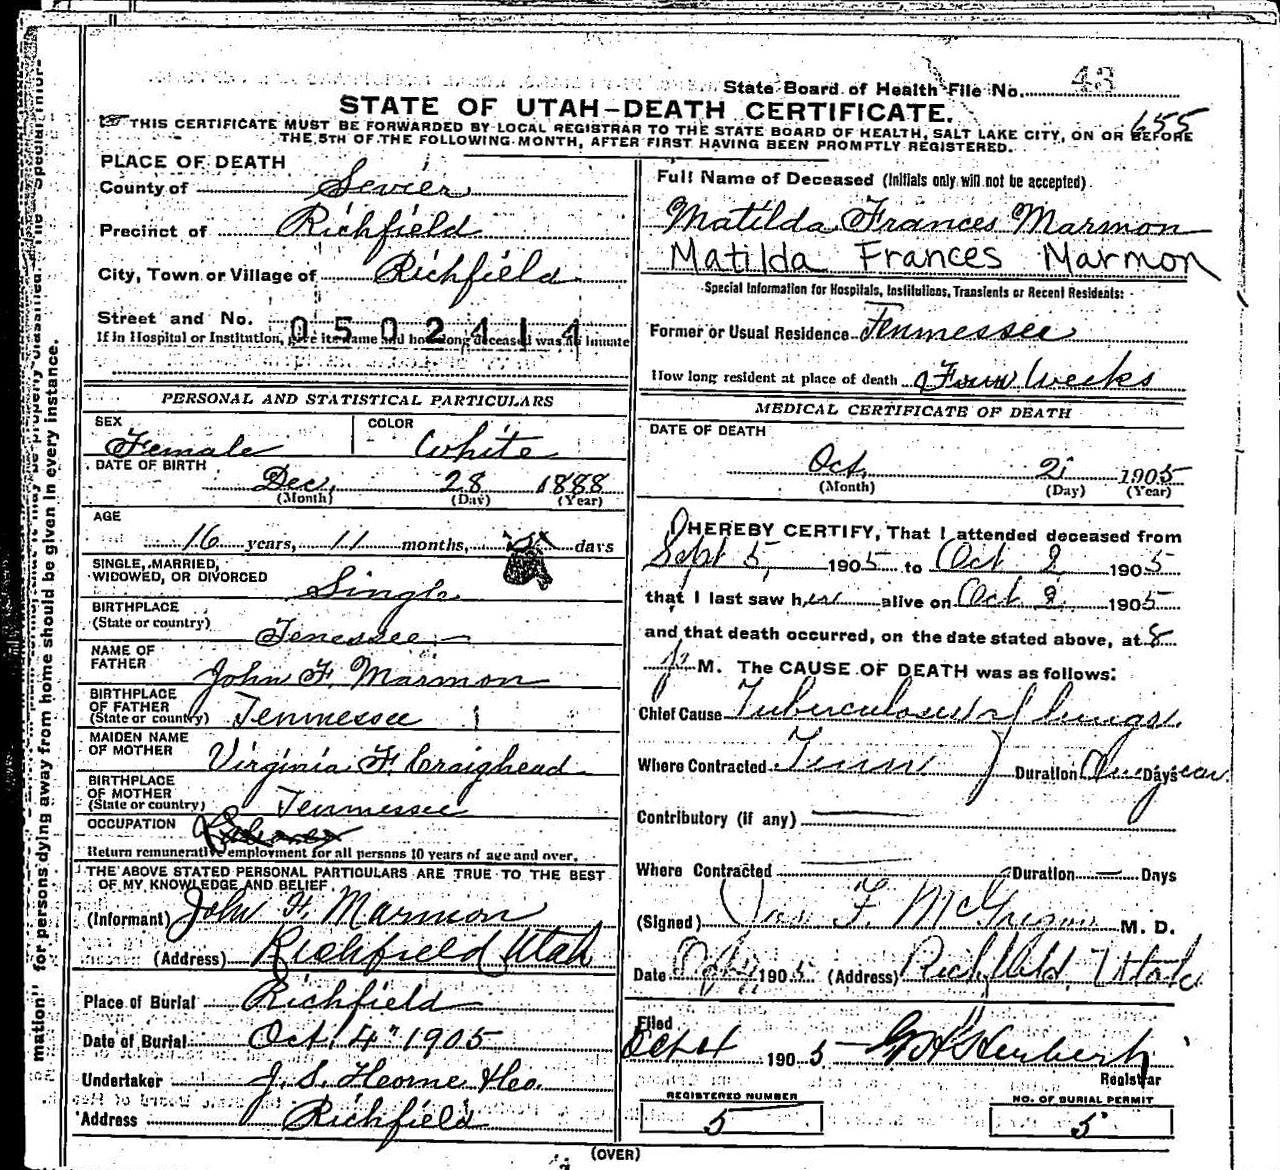 State Board of Health File No. 43
STATE OF UTAH-DEATH CERTIFICATE.
155
THIS CERTIFICATE MUST BE FORWARDED BY LOCAL REGISTRAR TO THE STATE BOARD OF HEALTH, SALT LAKE CITY, ON OR BEFORE
THE 5TH OF THE FOLLOWING MONTH, AFTER FIRST HAVING BEEN PROMPTLY REGISTERED.
PLACE OF DEATH
County of Sevier
Precinct of Richfield
City, Town or Village of Richfield
Street and No. 0502414
If in Hospital or Institution, give its name and how long deceased was an inmate
PERSONAL AND STATISTICAL PARTICULARS
SEX Female
COLOR White
DATE OF BIRTH
Dec. 28 1888
(Month) (Day) (Year)
AGE
16 years, 11 months, days
SINGLE, MARRIED,
WIDOWED, OR DIVORCED Single
BIRTHPLACE
(State or country) Tenessee
NAME OF
FATHER John F. Marmon
BIRTHPLACE
OF FATHER
(State or country) Tennessee
MAIDEN NAME
OF MOTHER Virginia F. Craighead
BIRTHPLACE
OF MOTHER
(State or country) Tennessee
OCCUPATION
Return remunerative employment for all persons 10 years of age and over.
THE ABOVE STATED PERSONAL PARTICULARS ARE TRUE TO THE BEST
OF MY KNOWLEDGE AND BELIEF.
(Informant) John F. Marmon
(Address) Richfield Utah
Place of Burial Richfield
Date of Burial Oct. 4" 1905
Undertaker J. S. Horne
Address Richfield
Full Name of Deceased (Initials only will not be accepted)
Matilda Frances Marmon
Matilda Frances Marmon
Special Information for Hospitals, Institutions, Transients or Recent Residents:
Former or Usual Residence Tennessee
How long resident at place of death Four Weeks
MEDICAL CERTIFICATE OF DEATH
DATE OF DEATH
Oct. 2 1905
(Month) (Day) (Year)
I HEREBY CERTIFY, That I attended deceased from
Sept 5, 1905 to Oct 2 1905
that I last saw her alive on Oct 2 1905
and that death occurred, on the date stated above, at 8
p M. The CAUSE OF DEATH was as follows:
Chief Cause Tuberculosis of lungs.
Where Contracted Tenn Duration One Days year
Contributory (if any)
Where Contracted Duration Days
(Signed) Jas F. M. D.
Date 1905 (Address) Richfield, Utah
Filed
Oct 4 1905 Registrar
REGISTERED NUMBER
5
NO. OF BURIAL PERMIT
5
(OVER)
mation" for persons dying away from home should be given in every instance.